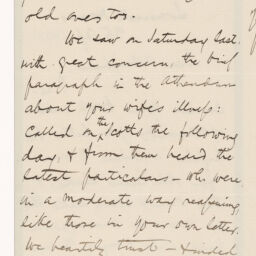 old ones too.
We saw on Saturday last,
with great concern, the brief
paragraph in the Athenaeum
about your wife's illness:
called on the Scotts the following
day, & from them heard the
latest particulars — who were
in a moderate way reassuring,
like those in your own letter.
We heartily trust — & indeed